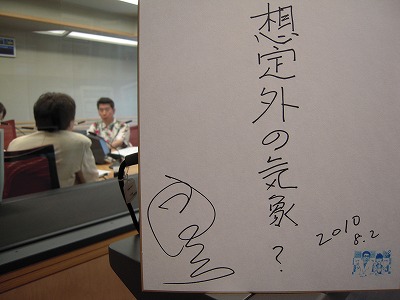 想定外の気象?
2010
8.2